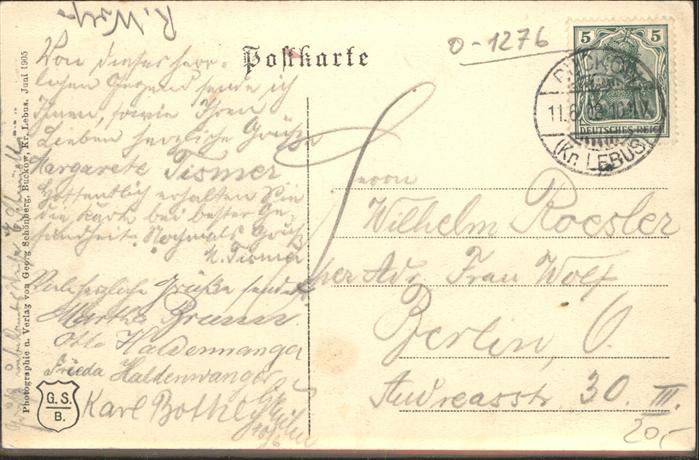 R. Wolf
Postkarte
0-1276
5 5
DEUTSCHES REICH
BUCKOW
11.6.
(Kr. LEBUS)
Von dieser herr-
lichen Gegend sende ich
Ihnen, sowie Ihren
Lieben herzliche Grüße
Margarete Tismer
Hoffentlich erhalten Sie
die Karte bei bester Ge-
sundheit. Nochmals Gruß
M. Tismer
Viele herzliche Grüße sendet
Martha
Otto Haldenwanger
Frieda Haldenwanger
Karl
Herrn
Wilhelm Roesler
per Adr. Frau Wolf
Berlin, O.
Andreasstr. 30. III.
20,-
G. S.
B.
Photographie u. Verlag von Georg Schönberg, Buckow, Kr. Lebus. Juni 1905